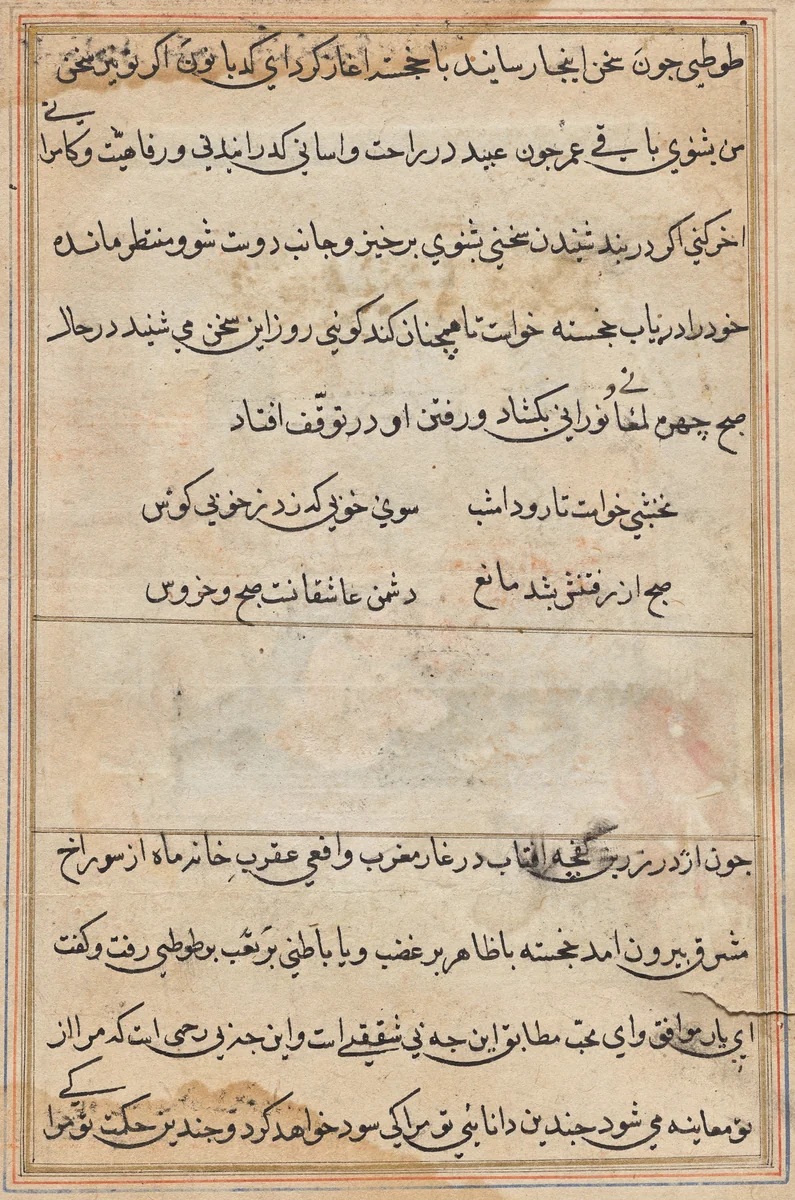 طوطي جون سخن اينجا رسانيد با خجسته اغاز كرد اي كدبانون اكر تو نيز سخن
من بشنوي باقي عمر جون عبيد در راحت و اساني كدراند و رفاهيّت و كامراني
اخر كني اكر در بند شنيدن سخني بشنوي برخيز و جانب دوست شو و منتظر مانده
خود را درياب خجسته خواست تا همچنان كند كونيي روز اين سخن مي شنيد در حال
صبح چهره نوراني بكشاد و رفتن او در توقّف افتاد
نخشبي خواست تا رود امشب سوي خوبي كه زد ز خوبي كوس
صبح از رفتنش بشد مانع دشمن عاشقانت صبح و خروس
جون اژدر زرين كفچه افتاب در غار مغرب و افعي عقرب خانه ماه از سوراخ
مشرق بيرون امد خجسته با ظاهر بر غضب و با باطني بر تعب بر طوطي رفت و كفت
اي يار موافق و اي محبّ مطابق اين جه بي شفيقي است و اين جه بي رحمي است كه مرا از
تو معاينه مي شود جندين دانايئي تو مرا كي سود خواهد كرد و جندين حكمت تو مرا كي